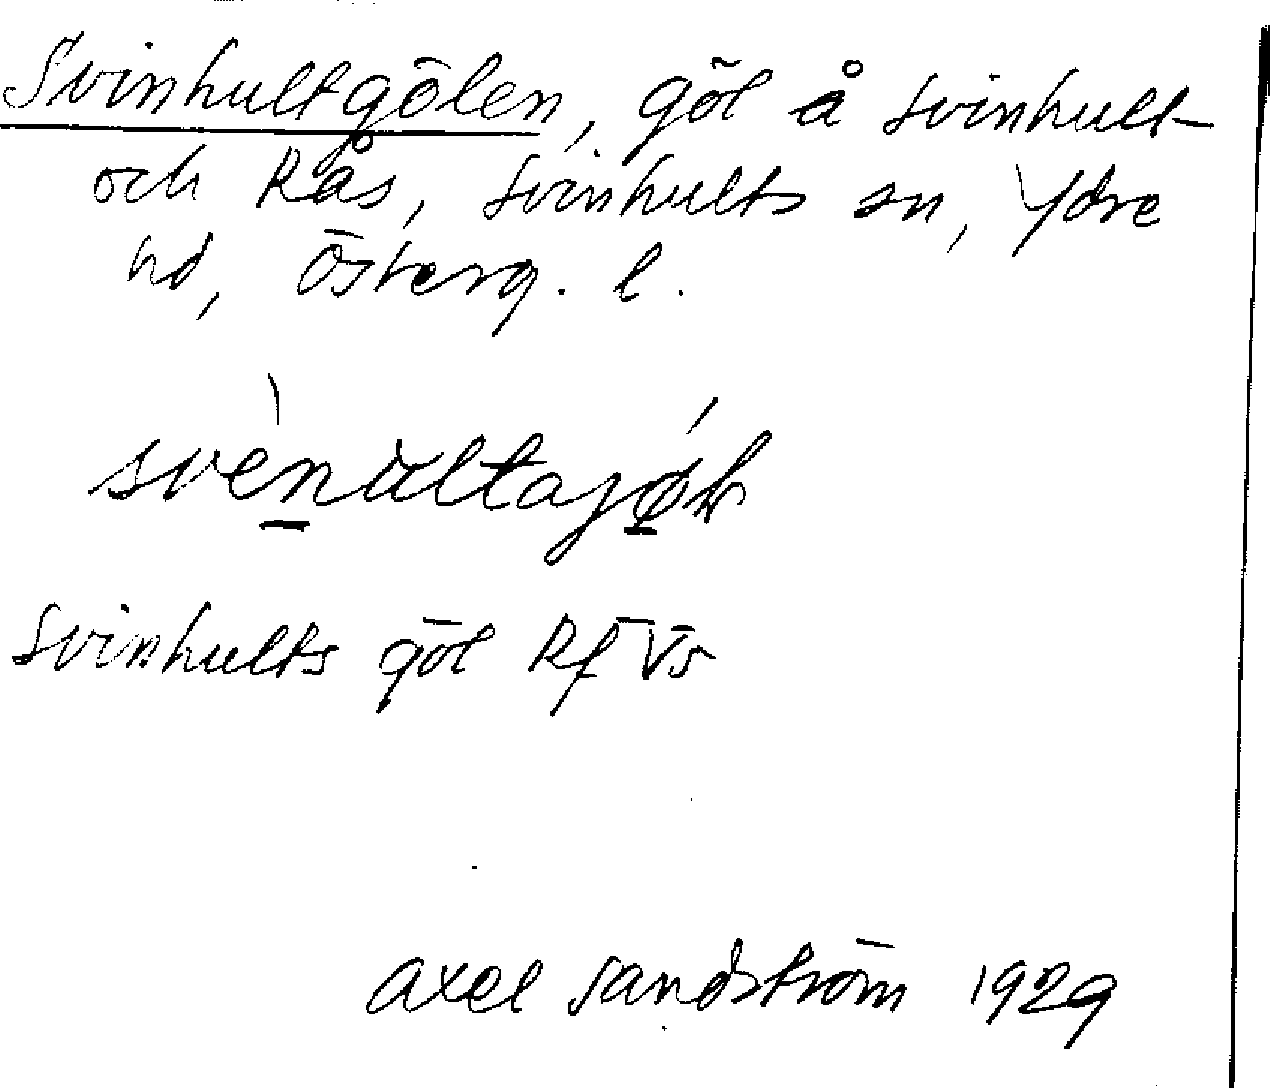 Svinhultgölen, göl å Svinhult
och Rås, Svinhults sn, Ydre
hd, Österg. l.
Svinhults göl Rf Vs
Axel Sandström 1929